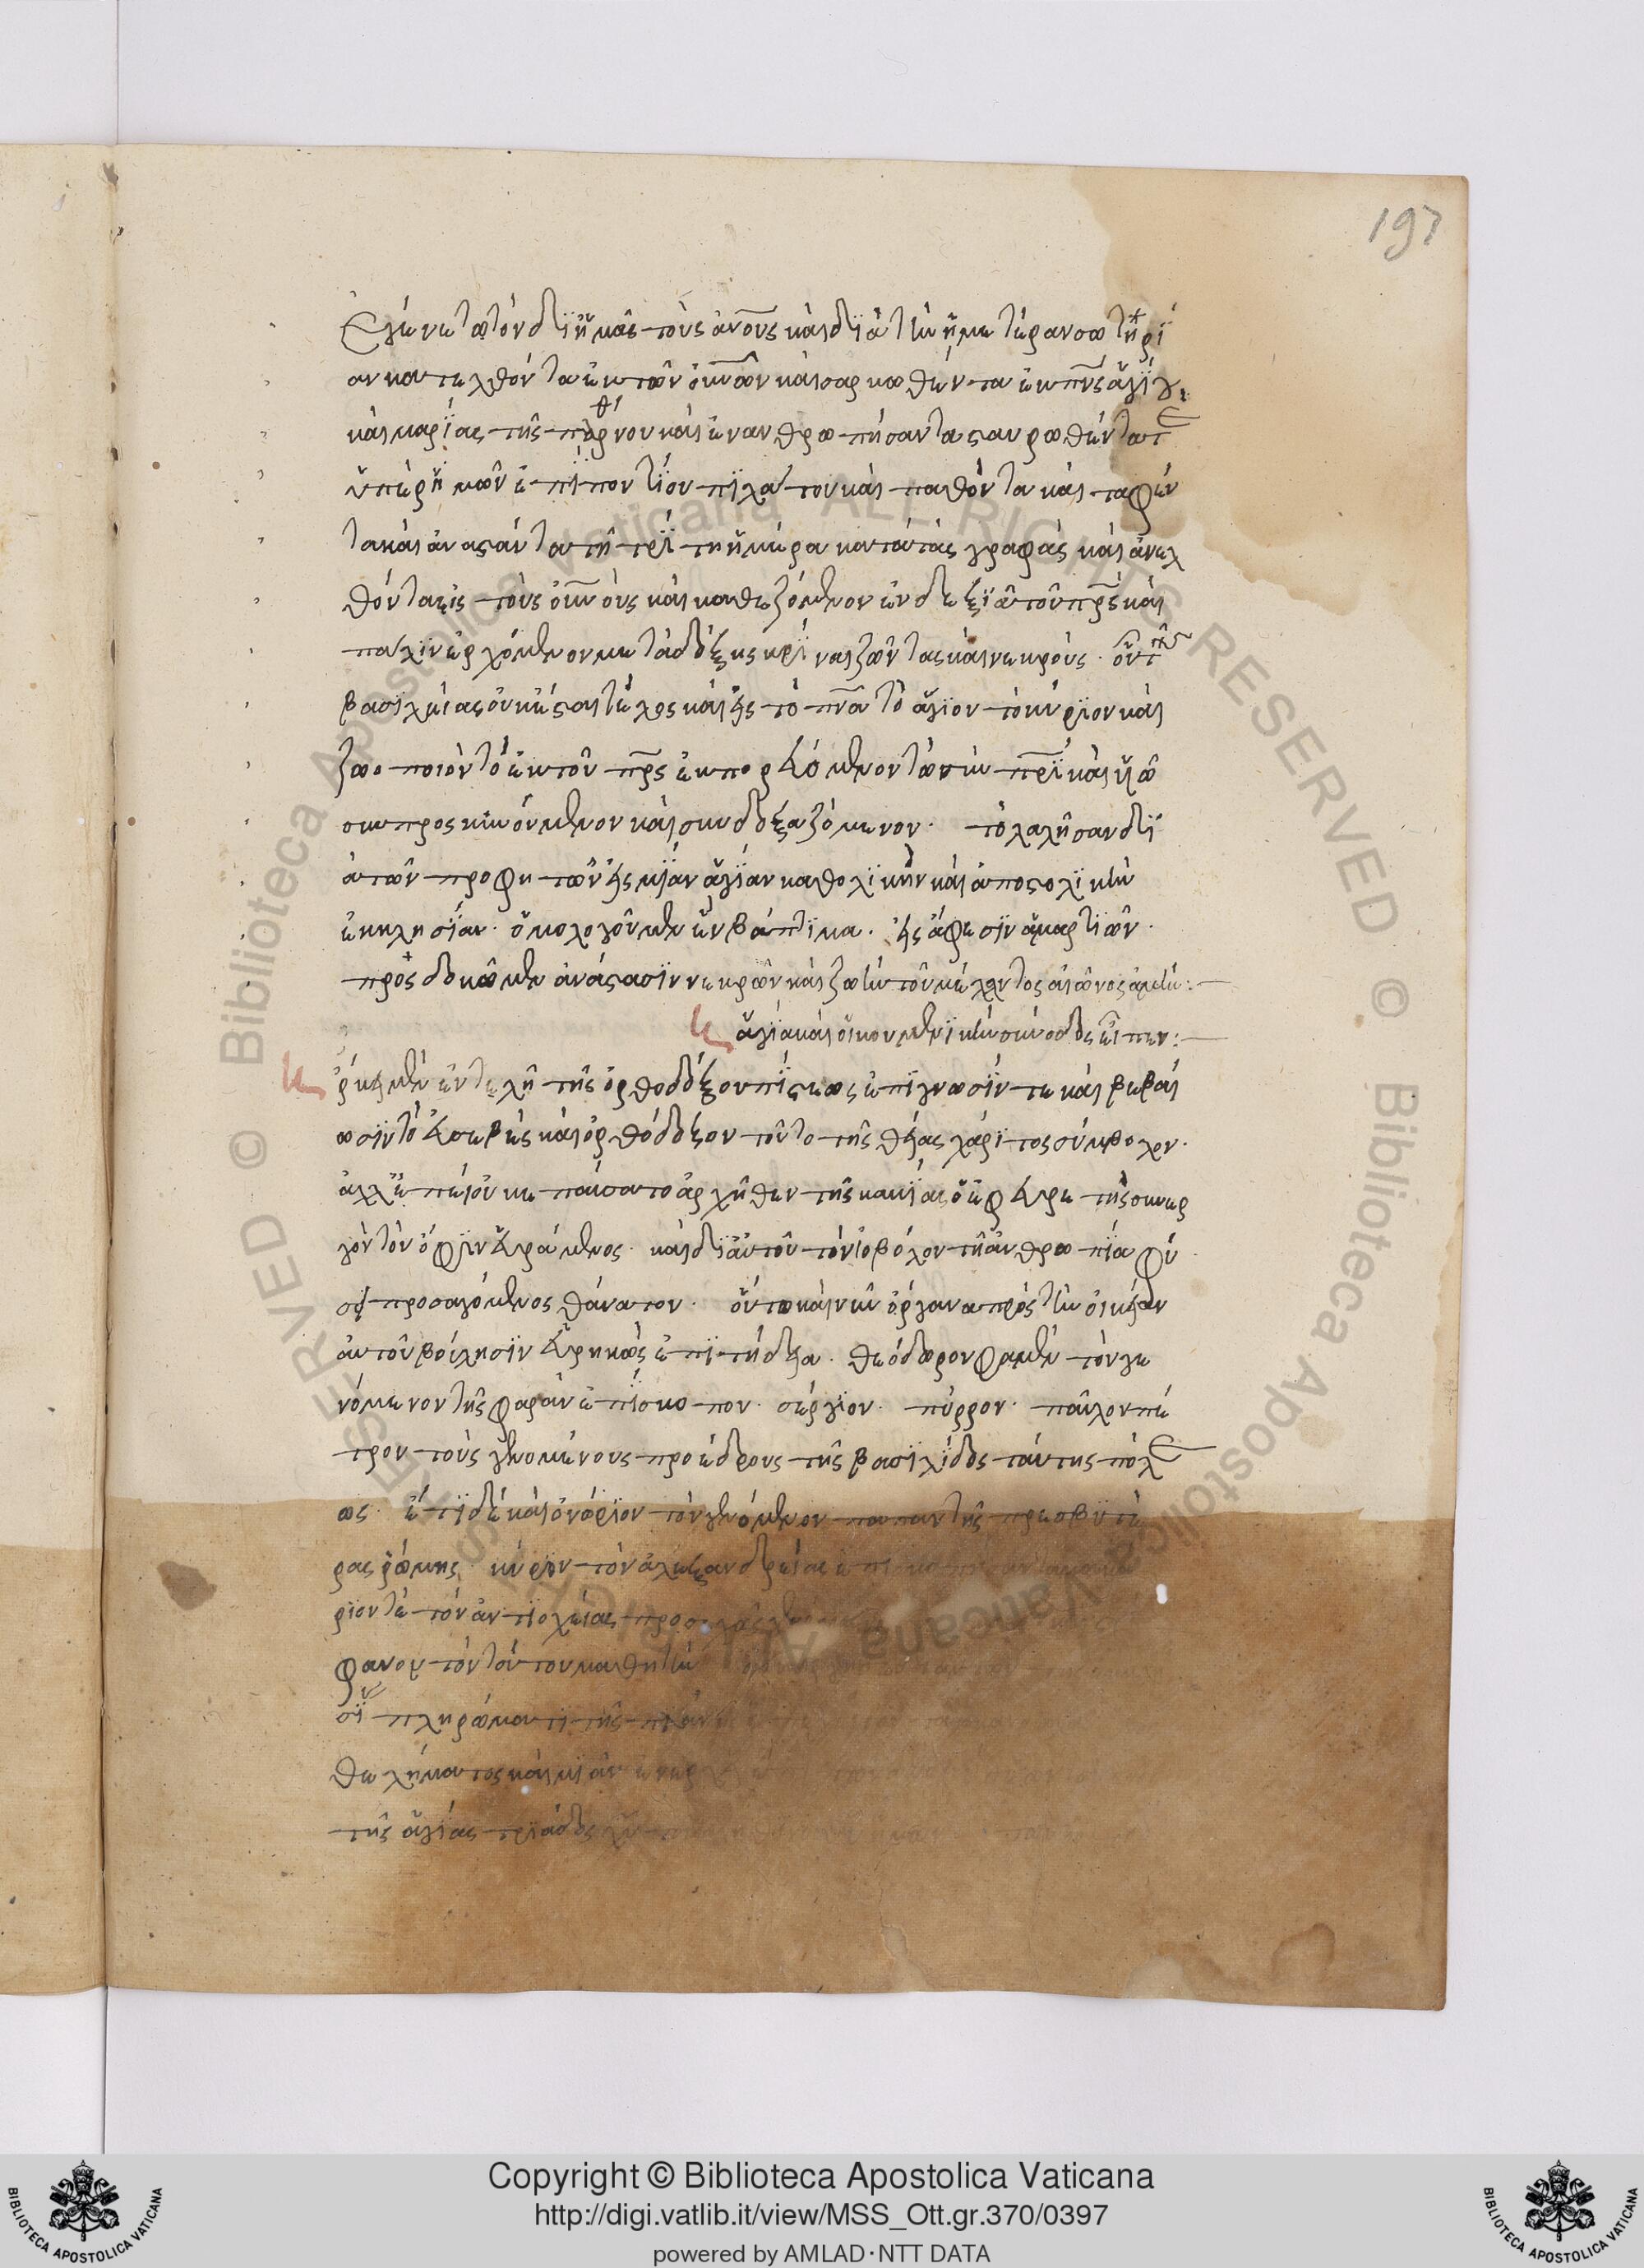 197
ἐγένετο τὸν δι ἡμᾶς τοὺς ἀνους καὶ διὰ τὴν ἡμετέραν σωτηρί
αν κατελθόντα ἐκ τῶν οὐνῶν καὶ σαρκωθέντα ἐκ πνς ἁγίου
καὶ μαρίας τῆς παρθένου καὶ ἐνανθρωπήσαντα σταυρωθέντα τε
ὑπὲρ ἡμῶν ἐπὶ ποντίου πιλάτου καὶ παθόντα καὶ ταφέν
τα καὶ ἀναστάντα τῆ τρίτη ἡμέρα κατὰ τὰς γραφὰς καὶ ἀνελ
θόντα εἰς τοὺς οὐνοὺς καὶ καθεζόμενον ἐν δεξιᾶ τοῦ πρς καὶ
πάλιν ἐρχόμενον μετὰ δόξης κρίναι ζῶντας καὶ νεκρούς. οὗ τῆς
βασιλείας οὐκ ἔσται τέλος καὶ εἰς τὸ πνα τὸ ἅγιον τὸ κύριον καὶ
ζωοποιὸν τὸ ἐκ τοῦ πρς ἐκπορευόμενον τὸ σὺν πρι καὶ υἱῶ
συνπροσκυνούμενον καὶ συνδοξαζόμενον. τὸ λαλῆσαν δι
ὰ τῶν προφητῶν εἰς μίαν ἁγίαν καθολικὴν καὶ ἀποστολικὴν
ἐκκλησίαν. ὁμολογοῦμεν ἓν βάπτιμα. εἰς ἄφεσιν ἁμαρτιῶν.
προσδοκῶμεν ἀνάστασιν νεκρῶν καὶ ζωὴν τοῦ μέλλοντος αἰῶνος ἀμήν:
ἁγία καὶ οἰκουμενικὴ σύνοδος εἶπεν:
ἤρκει μὲν ἐντελῆ τῆς ὀρθοδόξου πίστεως ἐπίγνωσίν τε καὶ βεβαί
ωσιν τὸ εὐσεβὲς καὶ ὀρθόδοξον τοῦτο τῆς θείας χάριτος σύμβολον.
ἀλλ ἐπεὶ οὐκ ἐπαύσατο ἀρχῆθεν τῆς κακίας ὁ ἐφευρετὴς συνερ
γὸν τὸν ὄφιν εὑράμενος. καὶ δι αὐτοῦ τὸν ἰοβόλον τῆ ἀνθρωπία φύ
σει προσαγόμενος θάνατον. οὕτω καὶ νῦν ὄργανα πρὸς τὴν οἰκείαν
αὐτοῦ βούλησιν εὑρηκὼς ἐπιτήδεια. θεόδωρον φαμὲν τὸν γε
νόμενον τῆς φαρὰν ἐπίσκοπον. σέργιον. πύρρον. παῦλον πέ
τρον τοὺς γενομένους προέδρους τῆς βασιλίδος ταύτης πόλε
ως. ἔτι δὲ καὶ ὀνόριον τὸν γενόμενον παπαν τῆς πρεσβυτέ
ρας ῥώμης. κύρον τὸν ἀλεξανδρείας ἐπίσκοπήσαντα μακά
ριόν τε τὸν ἀντιοχείας προσ
φανον τὸν τούτου μαθητὴν
σι πληρώματι τῆς
θελήματος καὶ μίαν ἐνερ
τῆς ἁγίας τριάδος
Copyright © Biblioteca Apostolica Vaticana
http://digi.vatlib.it/view/MSS_Ott.gr.370/0397
powered by AMLAD·NTT DATA
BIBLIOTECA APOSTOLICA VATICANA
BIBLIOTECA APOSTOLICA VATICANA